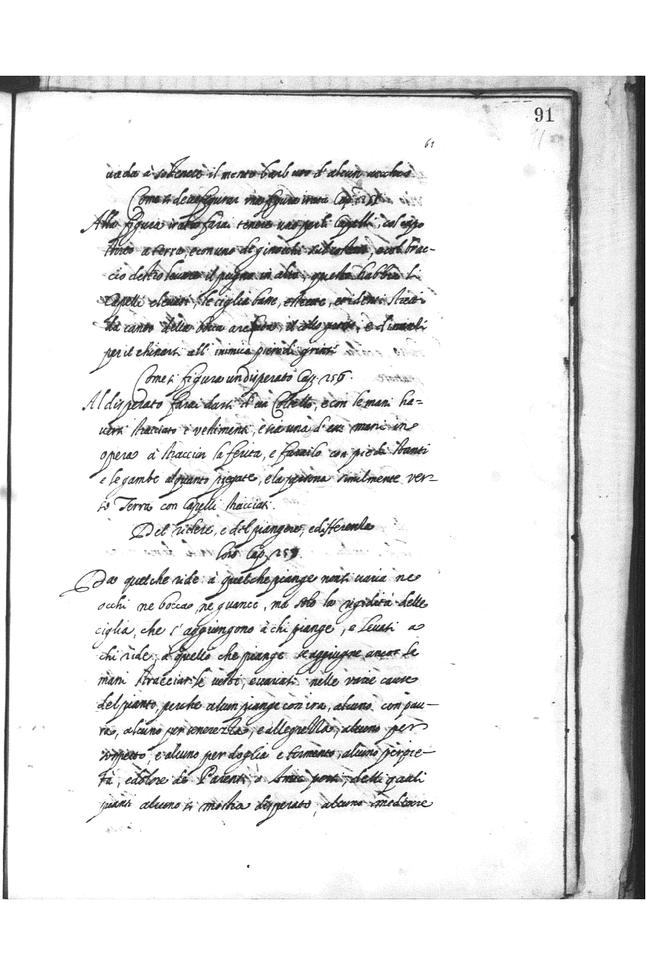 91
61
uada à sostenere il mento barbuto d'alcun uecchio
Come si de figurar una figura irata Cap. 255
Alla figura irata farai tenere uno per li Capelli, col capo
storto a terra, e con uno de ginocchi sul costato, e col brac-
cio destro leuare il pugno in alto, questo habbia li
Capelli eleuati, le ciglia basse, e strette, e i denti stretti
da canto della bocca arcati, il collo grosso, e dinanzi
per il chinarsi all'inimico pieno di grinze
Come si figura un disperato Cap. 256.
Al disperato farai darsi d'un Coltello, e con le mani ha-
uersi stracciato i vestimenti, e sia una d'esse mani in
opera à stracciar la ferita, e farailo con piedi stanti
e le gambe alquanto piegate, e la persona similmente ver-
so Terra con Capelli stracciati.
Del ridere, e del piangere, e differenza
loro Cap. 257.
Da quel che ride a quel che piange non si uaria ne
occhi ne bocca, ne guance, ma solo la rigidità delle
ciglia, che s'aggiungono à chi piange, e leuasi a
chi ride, à quello che piange se aggiugne ancor le
mani stracciar le vesti, e uariati nelle varie cause
del pianto, perche alcun piange con ira, alcuno con pau-
ra, alcuno per tenerezza, e allegrezza, alcuno per
sospetto, e alcuno per doglia e tormento, alcuno per pie-
tà, e dolore de Parenti, o Amici persi, delli quali
pianti alcuno si mostra disperato, alcuno mediocre